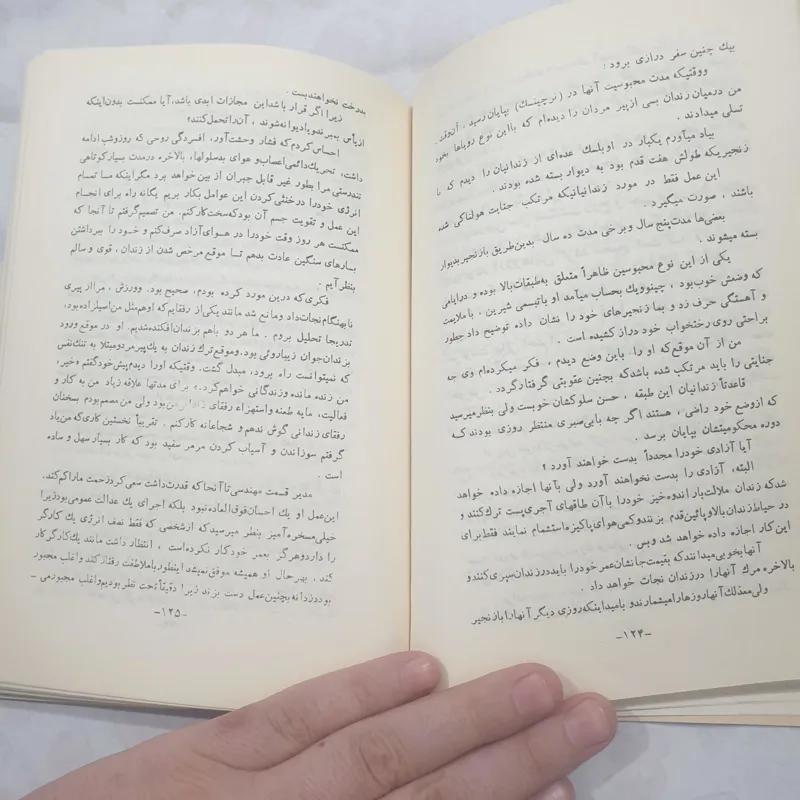 بیك چنین سفر درازی برود :
ووقتیکه مدت محبوسیت آنها در (نرچینسك) بپایان رسید ، آن‌وقت .
من درمیان زندان بسی ازپیر مردان را دیده‌ام که بااین نوع رویاها بخود
تسلی میدادند .
بیاد میآورم یکبار در اوبلسك عده‌ای از زندانیان را دیدم که با
زنجیریکه طولش هفت قدم بود به دیوار بسته شده بودند .
این عمل فقط در مورد زندانیانیکه مرتکب جنایت هولناکی شده
باشند ، صورت میگیرد .
بعضی‌ها مدت‌پنج سال وبرخی مدت ده سال بدین‌طریق بازنجیربدیوار
بسته میشوند .
یکی از این نوع محبوسین ظاهراً متعلق به‌طبقات‌بالا بوده و درایامی
که وضعش خوب‌بود ، چینوویك بحساب میآمد او باتبسمی شیرین ، با ملایمت
و آهستگی حرف زد و بما زنجیرهای خود را نشان داده توضیح دادچطور
براحتی روی رختخواب خود درازکشیده است .
من از آن موقع‌که او را باین وضع دیدم ، فکر میکرده‌ام وی چه
جنایتی را باید مرتکب شده باشدکه بچنین عقوبتی گرفتارگردد .
قاعدتاً زندانیان این طبقه ، حسن سلوکشان خوبست ولی بنظرمیرسید
که ازوضع خود راضی ، هستند اگر چه بابی‌صبری منتظر روزی بودند که
دوره محکومیتشان بپایان برسد .
آیا آزادی خودرا مجدداً بدست خواهند آورد ؟
البته، آزادی را بدست نخواهند آورد ولی بآنها اجازه داده خواهد
شدکه زندان ملالت‌بار اندوه‌خیز خودرا باآن طاقهای آجری‌پست ترك‌کنند و
در حیاط زندان بالاوپائین‌قدم بزنندوکمی‌هوای‌پاکیزه‌استشمام نمایند فقط‌برای
این کار اجازه داده خواهد شد وبس .
آنهابخوبی‌میدانندکه بقیمت‌جانشان‌عمرخودرا بایددرزندان‌سپری‌کنندو
بالاخره مرك آنهارا درزندان نجات خواهد داد .
ولی‌معذلك‌آنهاروزهارامیشمارندو باامیداینکه‌روزی دیگر آنهارا باززنجیر
-۱۲۴-
بدرخت نخواهندبست .
زیرا اگر قرار باشداین مجازات ابدی باشد،آیا ممکنست بدون‌اینکه
ازیأس به‌میرندویادیوانه‌شوند ، آن‌را تحمل‌کنند؟
احساس‌کردم که فشار وحشت‌آور، افسردگی روحی که روزوشب ادامه
داشت، تحریك‌دائمی‌اعصاب‌و هوای بدسلولها، بالاخره درمدت بسیارکوتاهی
تندرستی مرا بطور غیر قابل جبران از بین‌خواهد برد مگراینکه مــا تمــام
انرژی خودرا درخنثی‌کردن این عوامل بکار بریم یگانه راه برای انجـام
این عمل و تقویت جسم آن بودکه‌سخت‌کارکنم. من تصمیم‌گرفتم تا آنجا که
ممکنست هر روز وقت خودرا در هـوای‌آزاد صرف‌کنم و خـود را ببرداشتن
بــارهای سنگین عادت بدهم تــا موقع مرخص شدن از زندان ، قوی و سالم
بنظرآیم .
فکری‌که درین مورد کرده بودم، صحیح بود. وورزش ، مرااز پیری
نابهنگام‌نجات‌داد ومانع شد مانند یکی‌از رفقایم که اوهم‌مثل من‌اصیلزاده‌بود،
تدریجا تحلیل بروم . ما هر دو باهم بزندان‌افکنده‌شدیم. او در موقع ورود
بزندان‌جوان زیباروئی بود. وموقع‌ترك زندان به یك‌پیرمردومبتلا به تنك‌نفس
که نمیتوانست راه برود، مبدل گشت. وقتیکه اورا دیدم‌پیش‌خودگفتم «خیر،
من زنده مانده وزندگانی خواهم‌کرد.» برای مدتها علاقه زیاد من به کار و
فعالیت، مایه طعنه واستهزاء رفقای من‌بود ولی من مصمم‌بودم بسخنان
رفقای زندانی گوش ندهم و شجاعانه کارکنم . تقریباً نخستین کاری‌که من‌یاد
گرفتم سوزاندن و آسیاب کردن مرمر سفید بود که کار بسیار سهل و ساده
است .
مدیر قسمت مهندسی‌تاآنجاکه قدرت‌داشت سعی‌کردزحمت ماراکم‌کند.
این‌عمل او یك احسان‌فوق‌العاده‌نبود بلکه اجرای یك عدالت عمومی‌بودزیرا
خیلی‌مسخره‌آمیز بنظر میرسیدکه ازشخصی که فقط نصف انرژی یك کارگر
را دارد وهرگز بعمر خودکار نکرده است ، انتظار داشت مانند یك‌کارگرکار
کند . بهرحال او همیشه موفق نمیشد اینطوربا ملاطفت رفتارکند واغلب مجبور
بوددزدانه بچنین‌عمل دست بزند زیرا دقیقاً تحت نظر بودیم‌واغلب مجبورمی -
-۱۲۵-